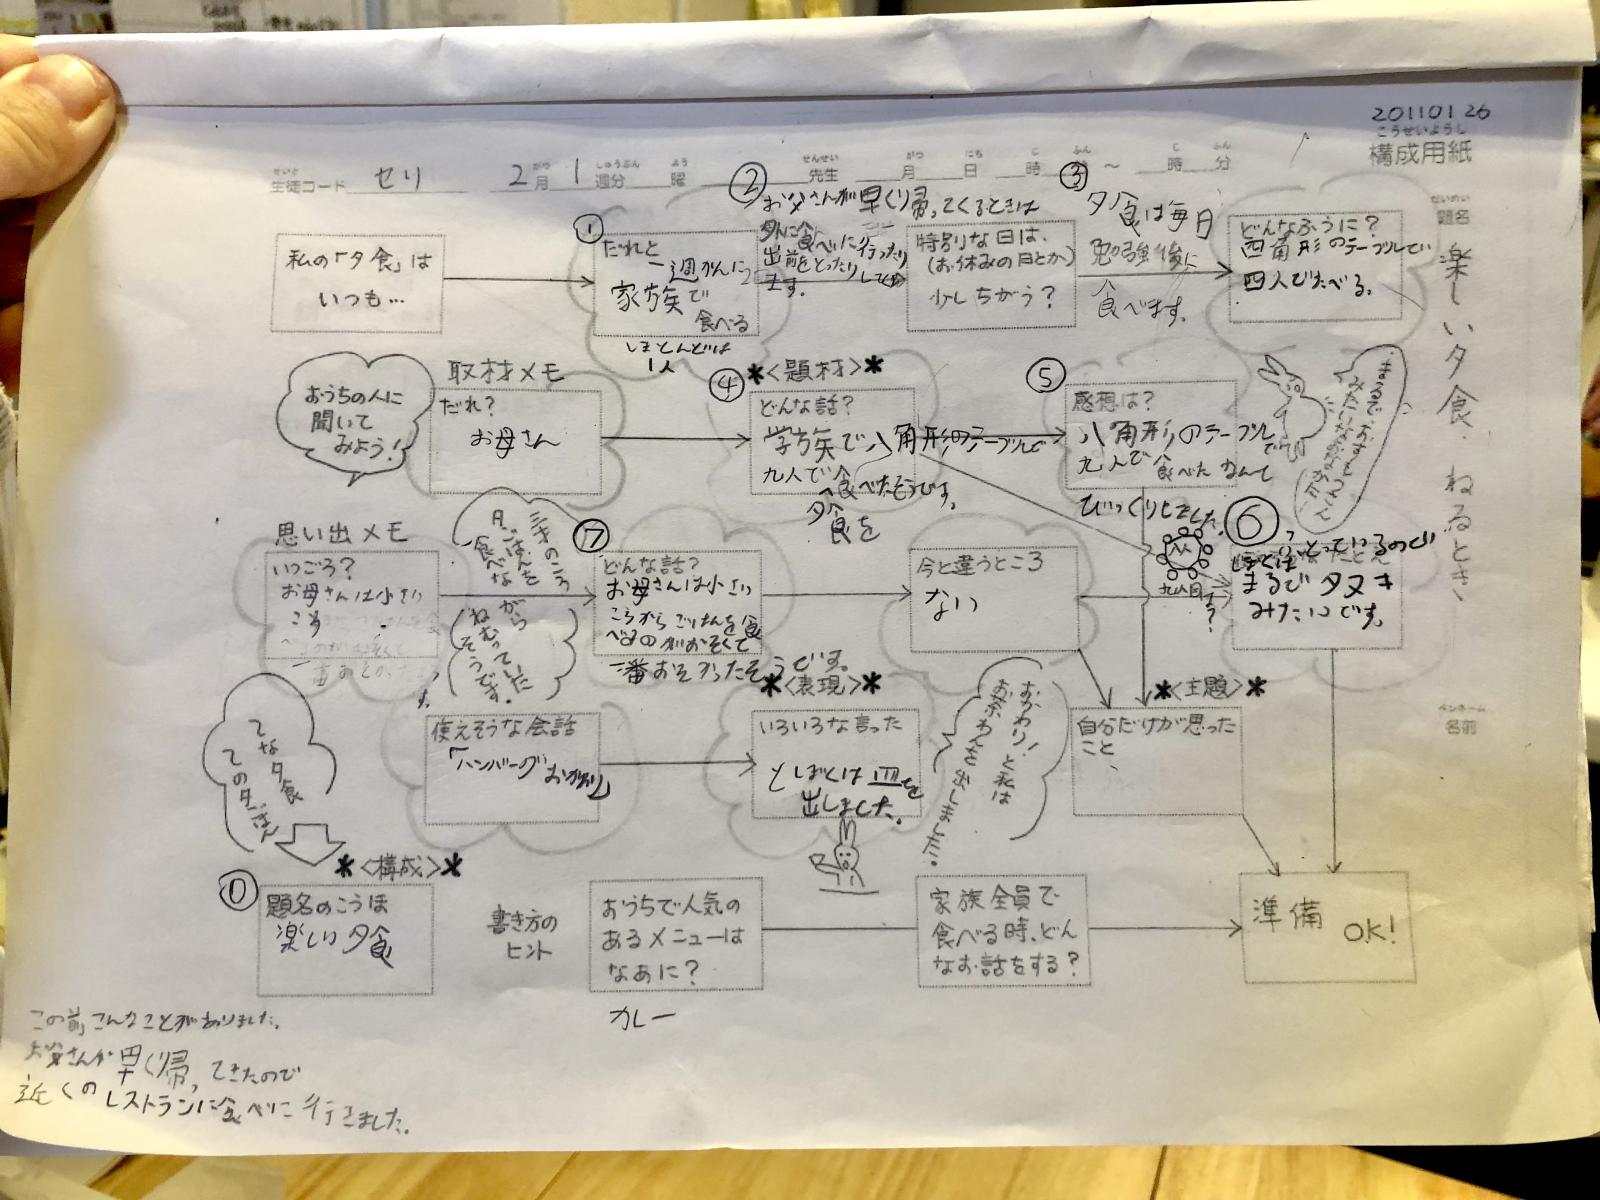 20110126
こうせいようし
構成用紙
生徒コード セリ 2月 1週分 曜 先生 月 日 時 分 ～ 時 分
題名
楽しい夕食.ねるとき、
私の「夕食」は
いつも…
①
だれと
一週かんに
家族で
食べる
ほとんどは
1人
②
お父さんが早くり帰ってくるときは
外に食べに行ったり
出前をとったりして
ます。
特別な日は、
(お休みの日とか)
少しちがう?
③
夕食は毎日
勉強後に
食べます。
どんなふうに?
四角形のテーブルで
四人でたべる。
おうちの人に
聞いて
みよう!
取材メモ
だれ?
お母さん
④
＊<題材>＊
どんな話?
学族で八角形のテーブルで
九人で食べたそうです。
夕食を
⑤
感想は?
八角形のテーブルで
九人で食べたなんて
びっくりしました。
思い出メモ
いつごろ?
お母さんは小さい
ころ
三才のころ
夕ごはんを
食べな
がら
ねむっていた
そうです。
⑦
どんな話?
お母さんは小さい
ころからごはんを食
べるのがおそくて
一番おそかったそうです。
今と違うところ
ない
⑥
まるでタヌキ
みたいです。
使えそうな会話
「ハンバーグおかわり」
＊<表現>＊
いろいろな言った
とぼくは皿を
出しました。
おかわり!と私は
おちゃわんを出しました。
＊<主題>＊
自分だけが思った
こと、
ペンネーム
名前
てな夕食
ての夕ごはん
＊<構成>＊
⓪
題名のこうほ
楽しい夕食
書き方の
ヒント
おうちで人気の
あるメニューは
なあに?
カレー
家族全員で
食べる時、どん
なお話をする?
準備 OK!
この前こんなことがありました。
お父さんが早くり帰ってきたので
近くのレストランに食べに行きました。